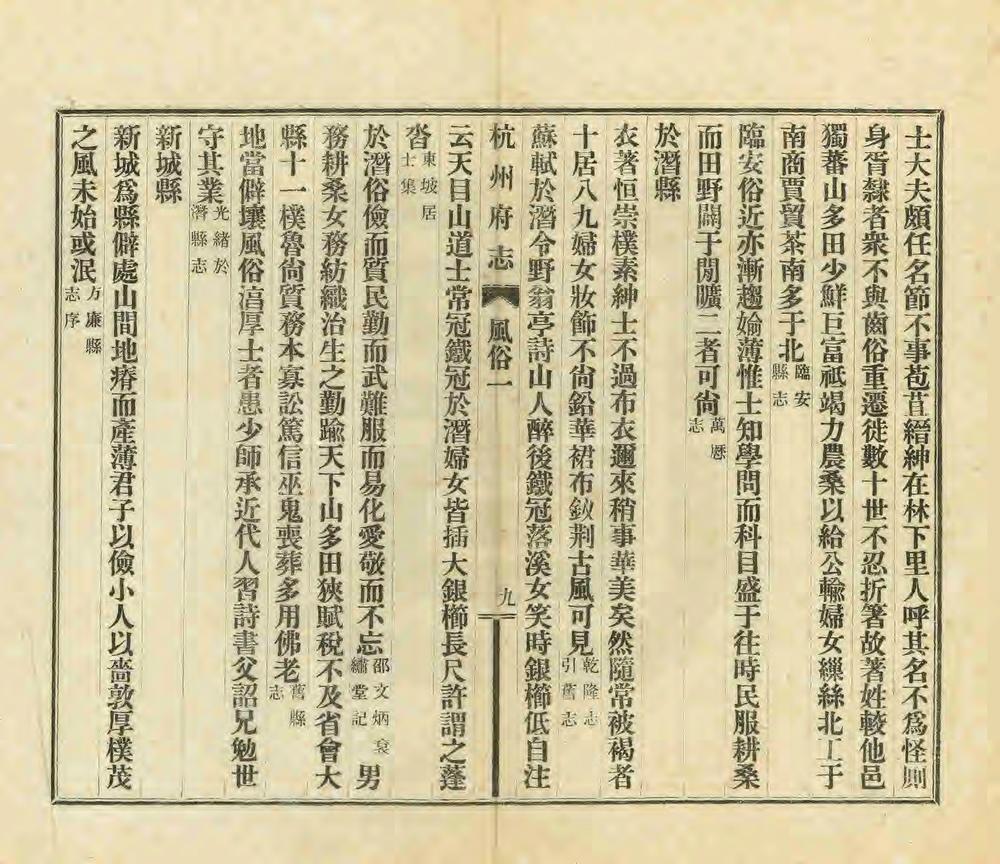 士大夫頗任名節不事苞苴縉紳在林下里人呼其名不爲怪厠
身胥隸者衆不與齒俗重遷徙數十世不忍折箸故著姓較他邑
獨蕃山多田少鮮巨富祗竭力農桑以給公輸婦女繅絲北工于
南商賈貿茶南多于北臨安縣志
臨安俗近亦漸趨媮薄惟士知學問而科目盛于往時民服耕桑
而田野闢于閒曠二者可尙萬厯志
於潛縣
衣著恒崇樸素紳士不過布衣邇來稍事華美矣然隨常被褐者
十居八九婦女妝飾不尙鉛華裙布釵荆古風可見乾隆志引舊志
蘇軾於潛令野翁亭詩山人醉後鐵冠落溪女笑時銀櫛低自注
杭州府志 風俗一 九
云天目山道士常冠鐵冠於潛婦女皆插大銀櫛長尺許謂之蓬
沓東坡居士集
於潛俗儉而質民勤而武難服而易化愛敬而不忘邵文炳袞繡堂記男
務耕桑女務紡織治生之勤踰天下山多田狹賦稅不及省會大
縣十一樸魯尙質務本寡訟篤信巫鬼喪葬多用佛老舊縣志
地當僻壤風俗湻厚士者患少師承近代人習詩書父詔兄勉世
守其業光緒於潛縣志
新城縣
新城爲縣僻處山間地瘠而產薄君子以儉小人以嗇敦厚樸茂
之風未始或泯方廉縣志序